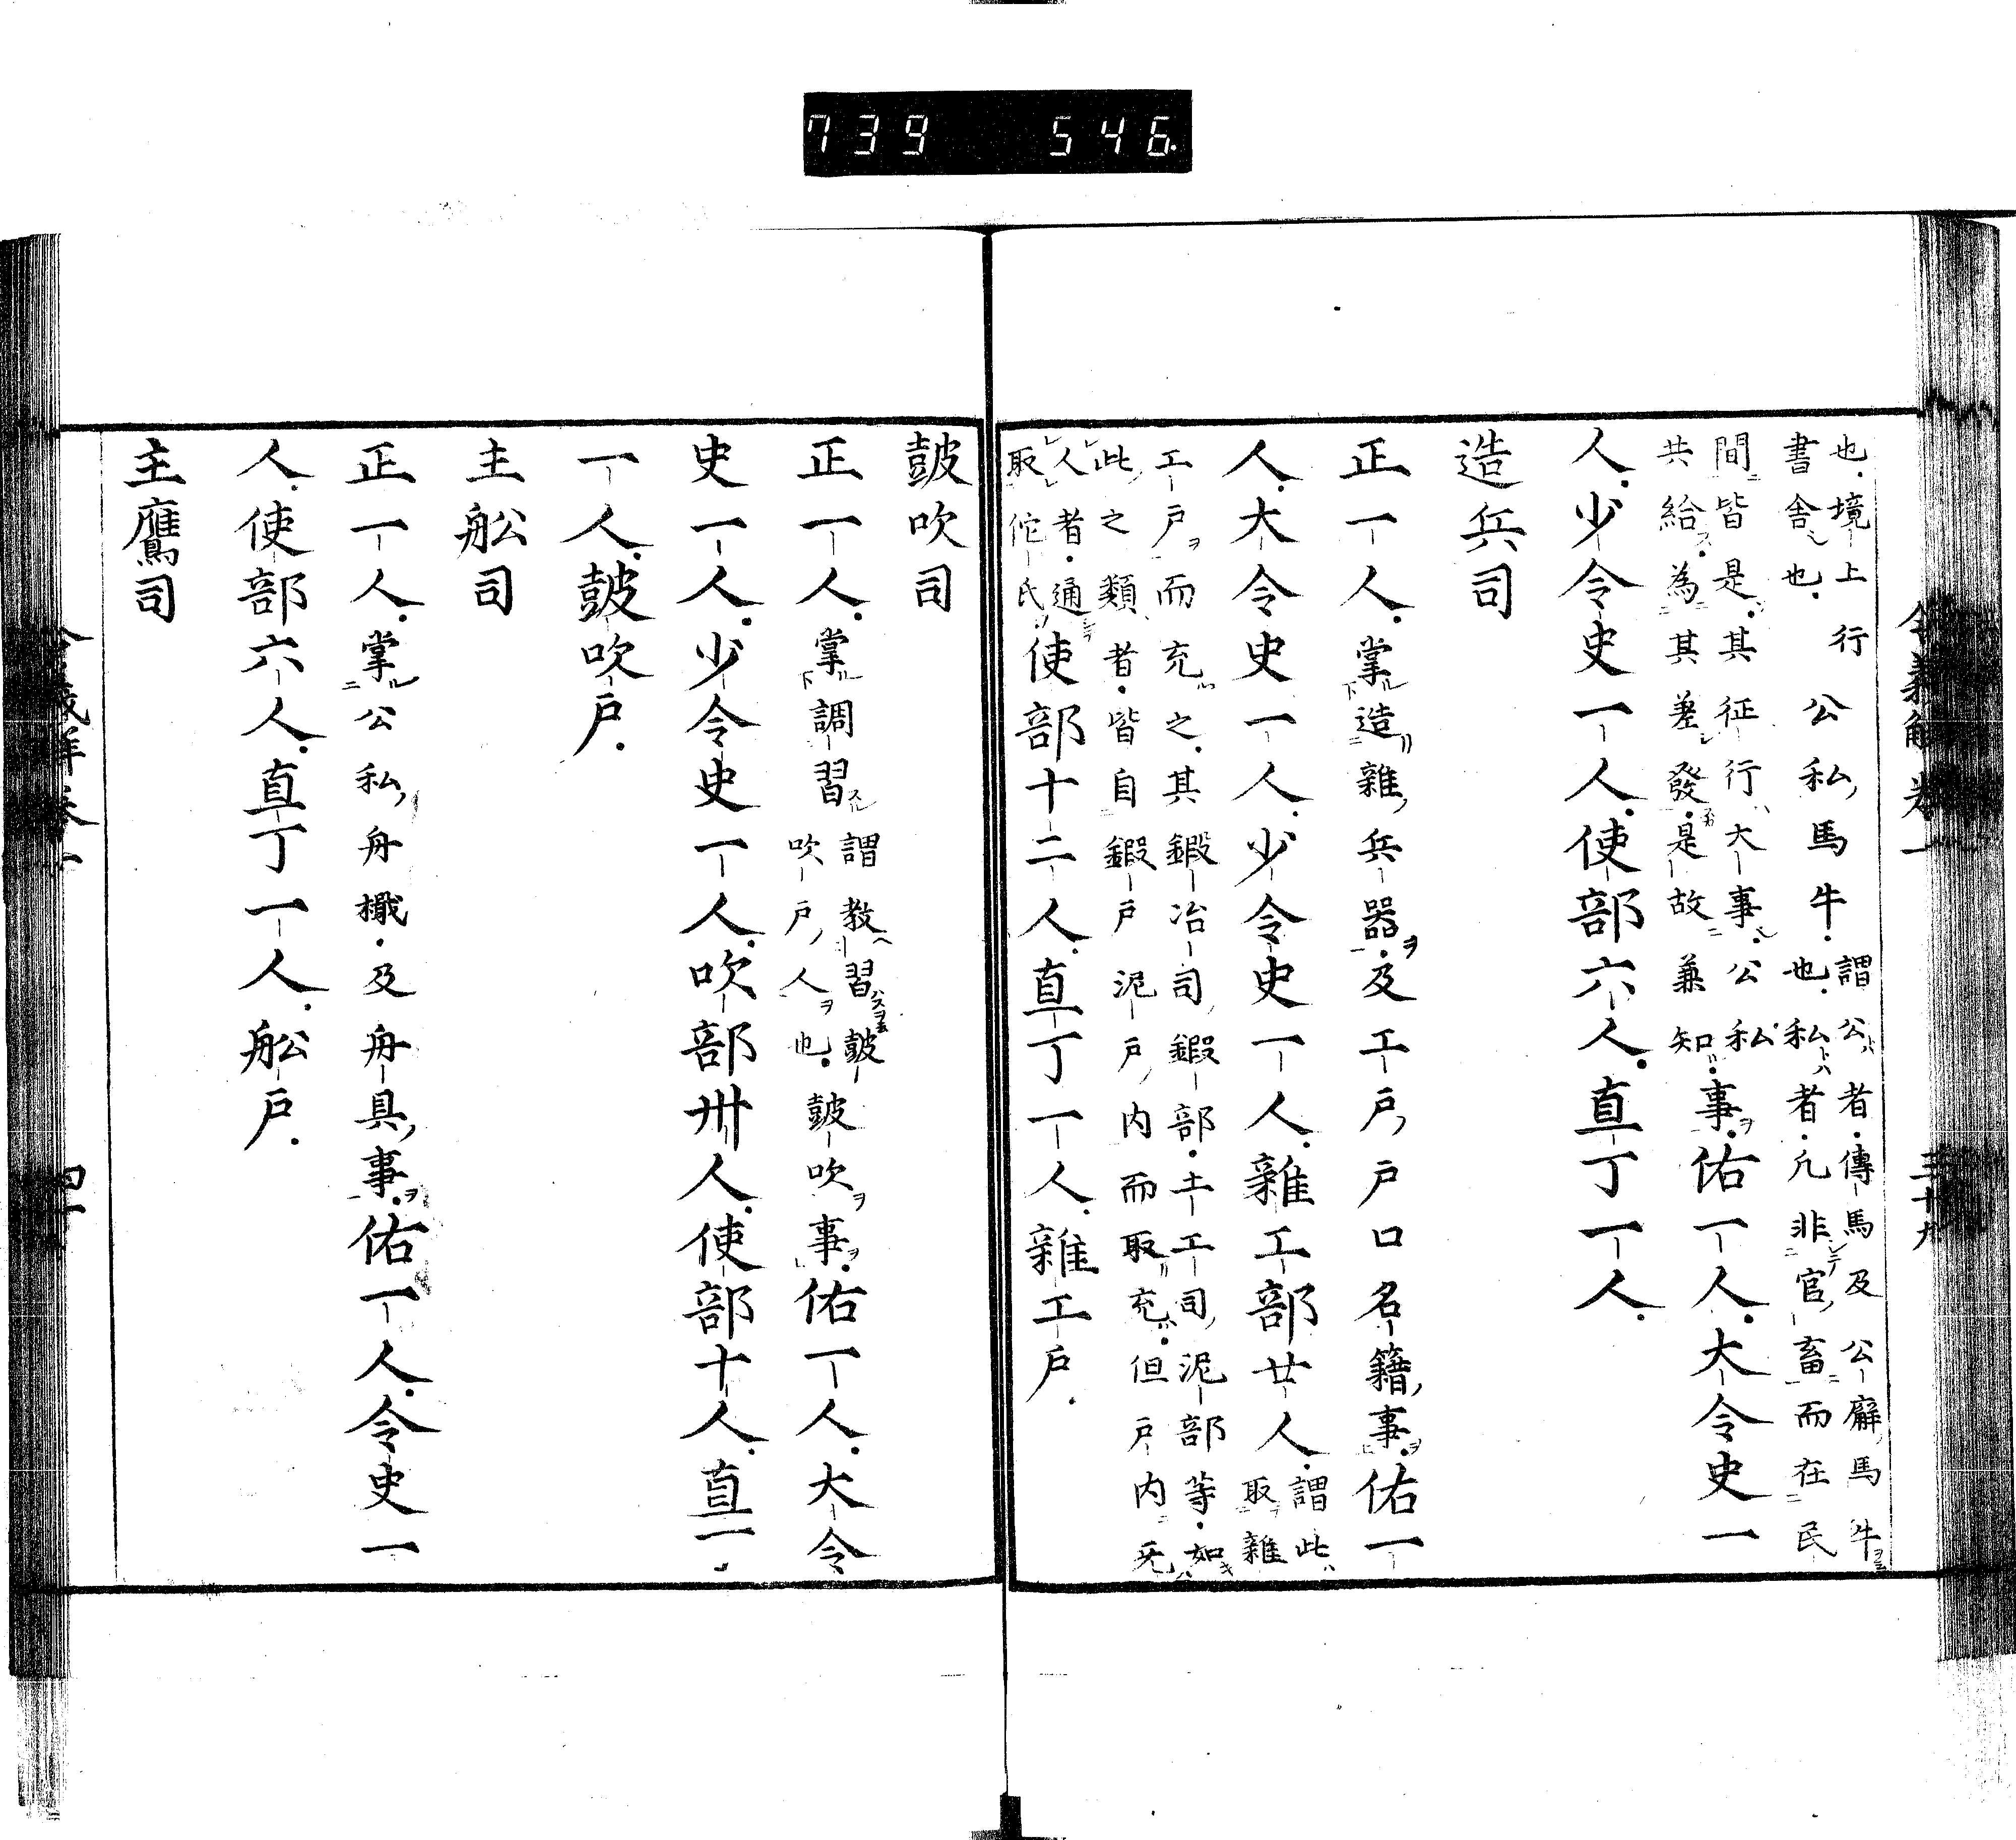 739 546.
令義解卷一 三十九
也境上行
書舍也
公私馬牛
謂公者傳馬及公廨馬牛
也私者凢非官畜而在民
間皆是其征行大事公私
共給為其差發是故兼知
事佑一人大令史一
人少令史一人使部六人直丁一人
造兵司
正一人掌造雜兵器及工戶戶口名籍事佑一
人大令史一人少令史一人雜工部廿人
謂此
取雜
工戶而充之其鍛冶司鍛部土工司泥部等如
此之類者皆自鍛戶泥戶内而取充但戶内无
人者通
取佗氏
使部十二人直丁一人雜工戶
鼓吹司
正一人掌調習
謂教習鼓
吹戶人也
鼓吹事佑一人大令
史一人少令史一人吹部卅人使部十人直丁
一人鼓吹戶
主舩司
正一人掌公私舟檝及舟具事佑一人令史一
人使部六人直丁一人舩戶
主鷹司